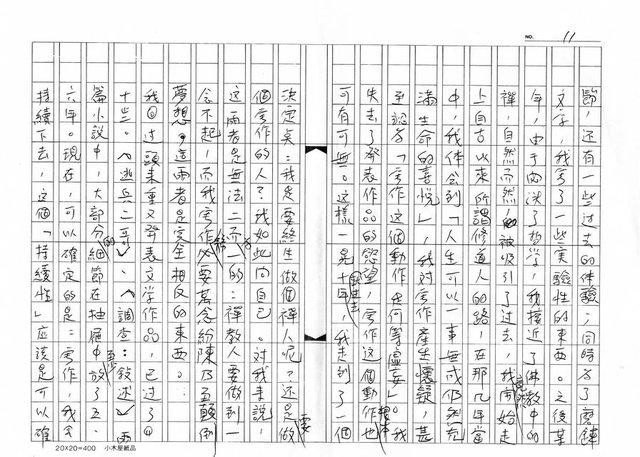 NO. 11
節,還有一些过去的体驗;同時为了磨鍊
文字,我寫了一些實驗性的東西。之後某
年,由于内決了哲學,我接近了佛教中的
禪,自然而然的被吸引了过去,我竟然開始走
上自古以來所謂修道人的路,在那几年當
中,我体会到「人生可以一事無成仍然充
滿生命的喜悅」,我对寫作產生懷疑,甚
至認为「寫作这個動作是何等虛妄」。我根本
失去了發表作品的慾望,寫作这個動作也
可有可無。这樣一晃十年过去,我走到了一個
決定点:我是要終生做個禪人呢?还是要做
個寫作的人?我如此问自己。对我來說,
这兩者是無法二而一的:禪教人要做到一
念不起,而我寫作必要某念紛陳乃至顛倒
夢想,这兩者是完全相反的東西。
我回过頭來重又發表文學作品,已过了四
十岁。〈逃兵二哥〉、〈調查:敘述〉兩
篇小說中,大部分的細節在抽屜中放了五、
六年。現在,可以確定的是:寫作,我会
持續下去,这個「持續性」应該是可以確
20X20=400 小木屋紙品